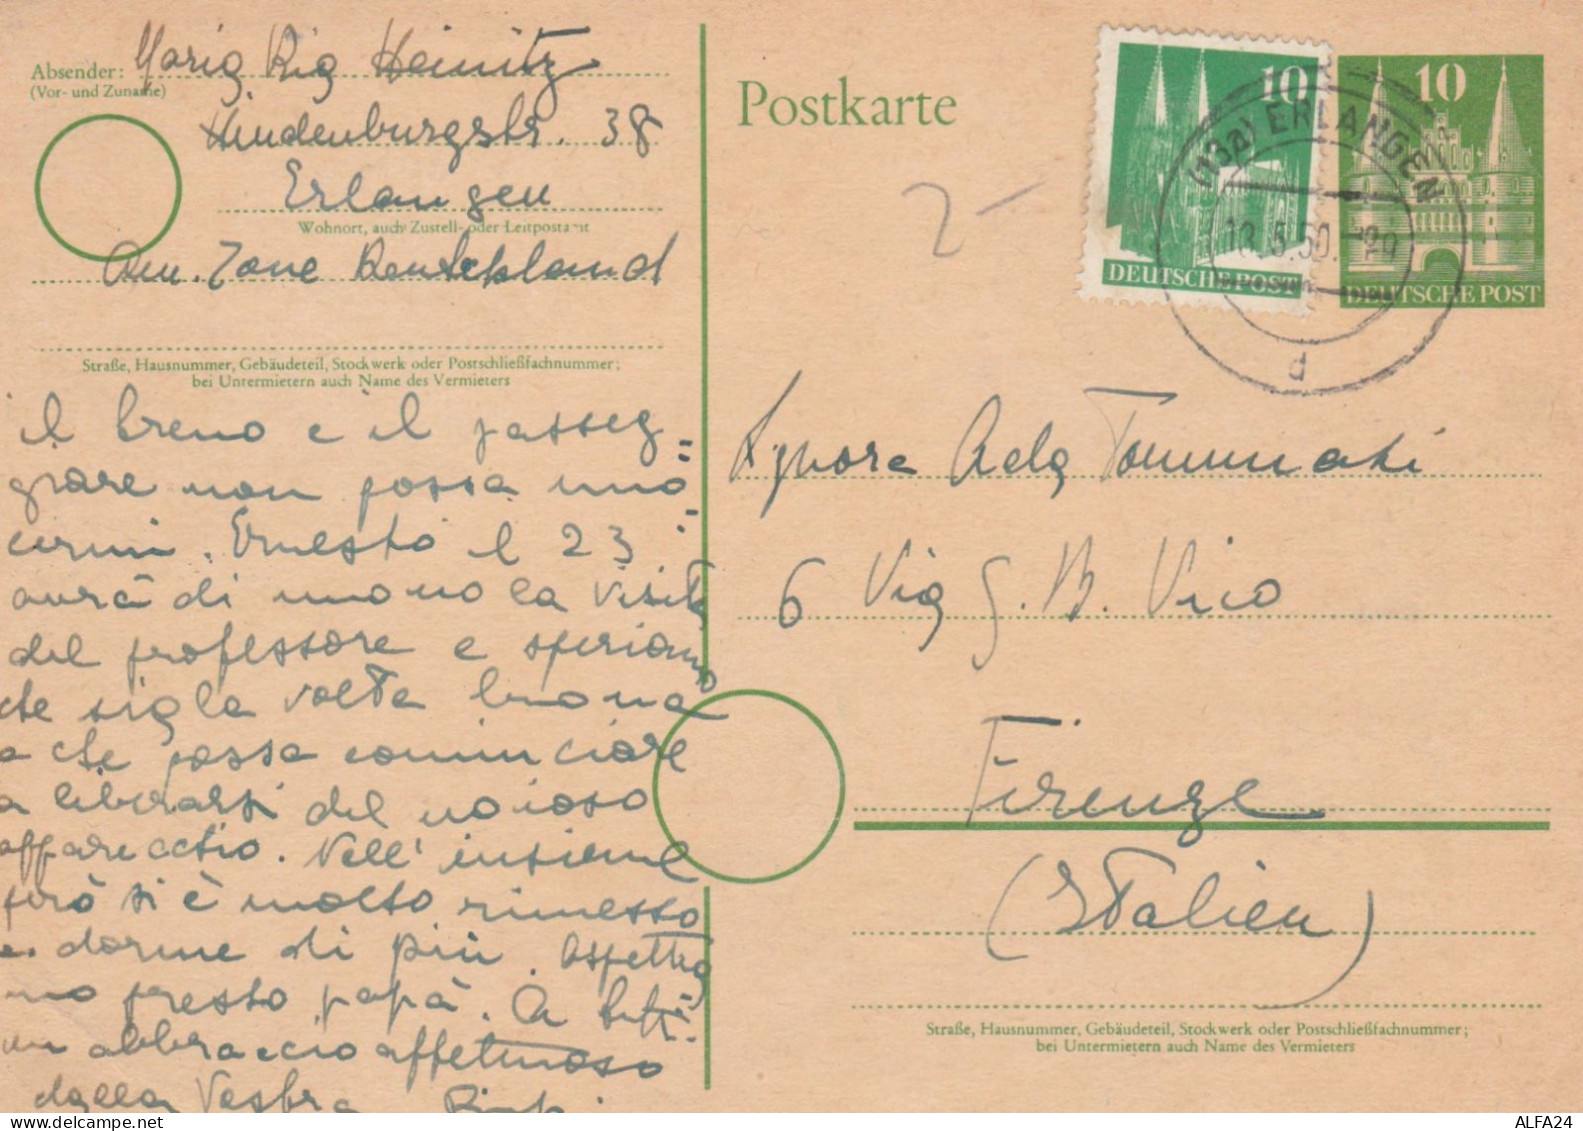 Absender:
(Vor- und Zuname)
Maria Pia Heinitz
Hindenburgstr. 38
Erlangen
Wohnort, auch Zustell- oder Leitpostamt
Am. Zone Deutschland
Straße, Hausnummer, Gebäudeteil, Stockwerk oder Postschließfachnummer;
bei Untermietern auch Name des Vermieters
il treno e il passeg=
giare non possa nuo-
cermi. Ernesto il 23
avrà di nuovo la visita
del professore e speriamo
che sia la volta buona
a che possa cominciare
a liberarsi del noioso
apparecchio. Nell' insieme
però si è molto rimesso
e dorme di più. Aspettia
mo presto papà. A tutti
un abbraccio affettuoso
dalla Vostra
Postkarte
2-
10
DEUTSCHE POST
10
DEUTSCHE POST
(13a) ERLANGEN 2
18.5.50.
d
Signora Ada Tommasi
6 Via G. B. Vico
Firenze
(Italien)
Straße, Hausnummer, Gebäudeteil, Stockwerk oder Postschließfachnummer;
bei Untermietern auch Name des Vermieters
ALFA24